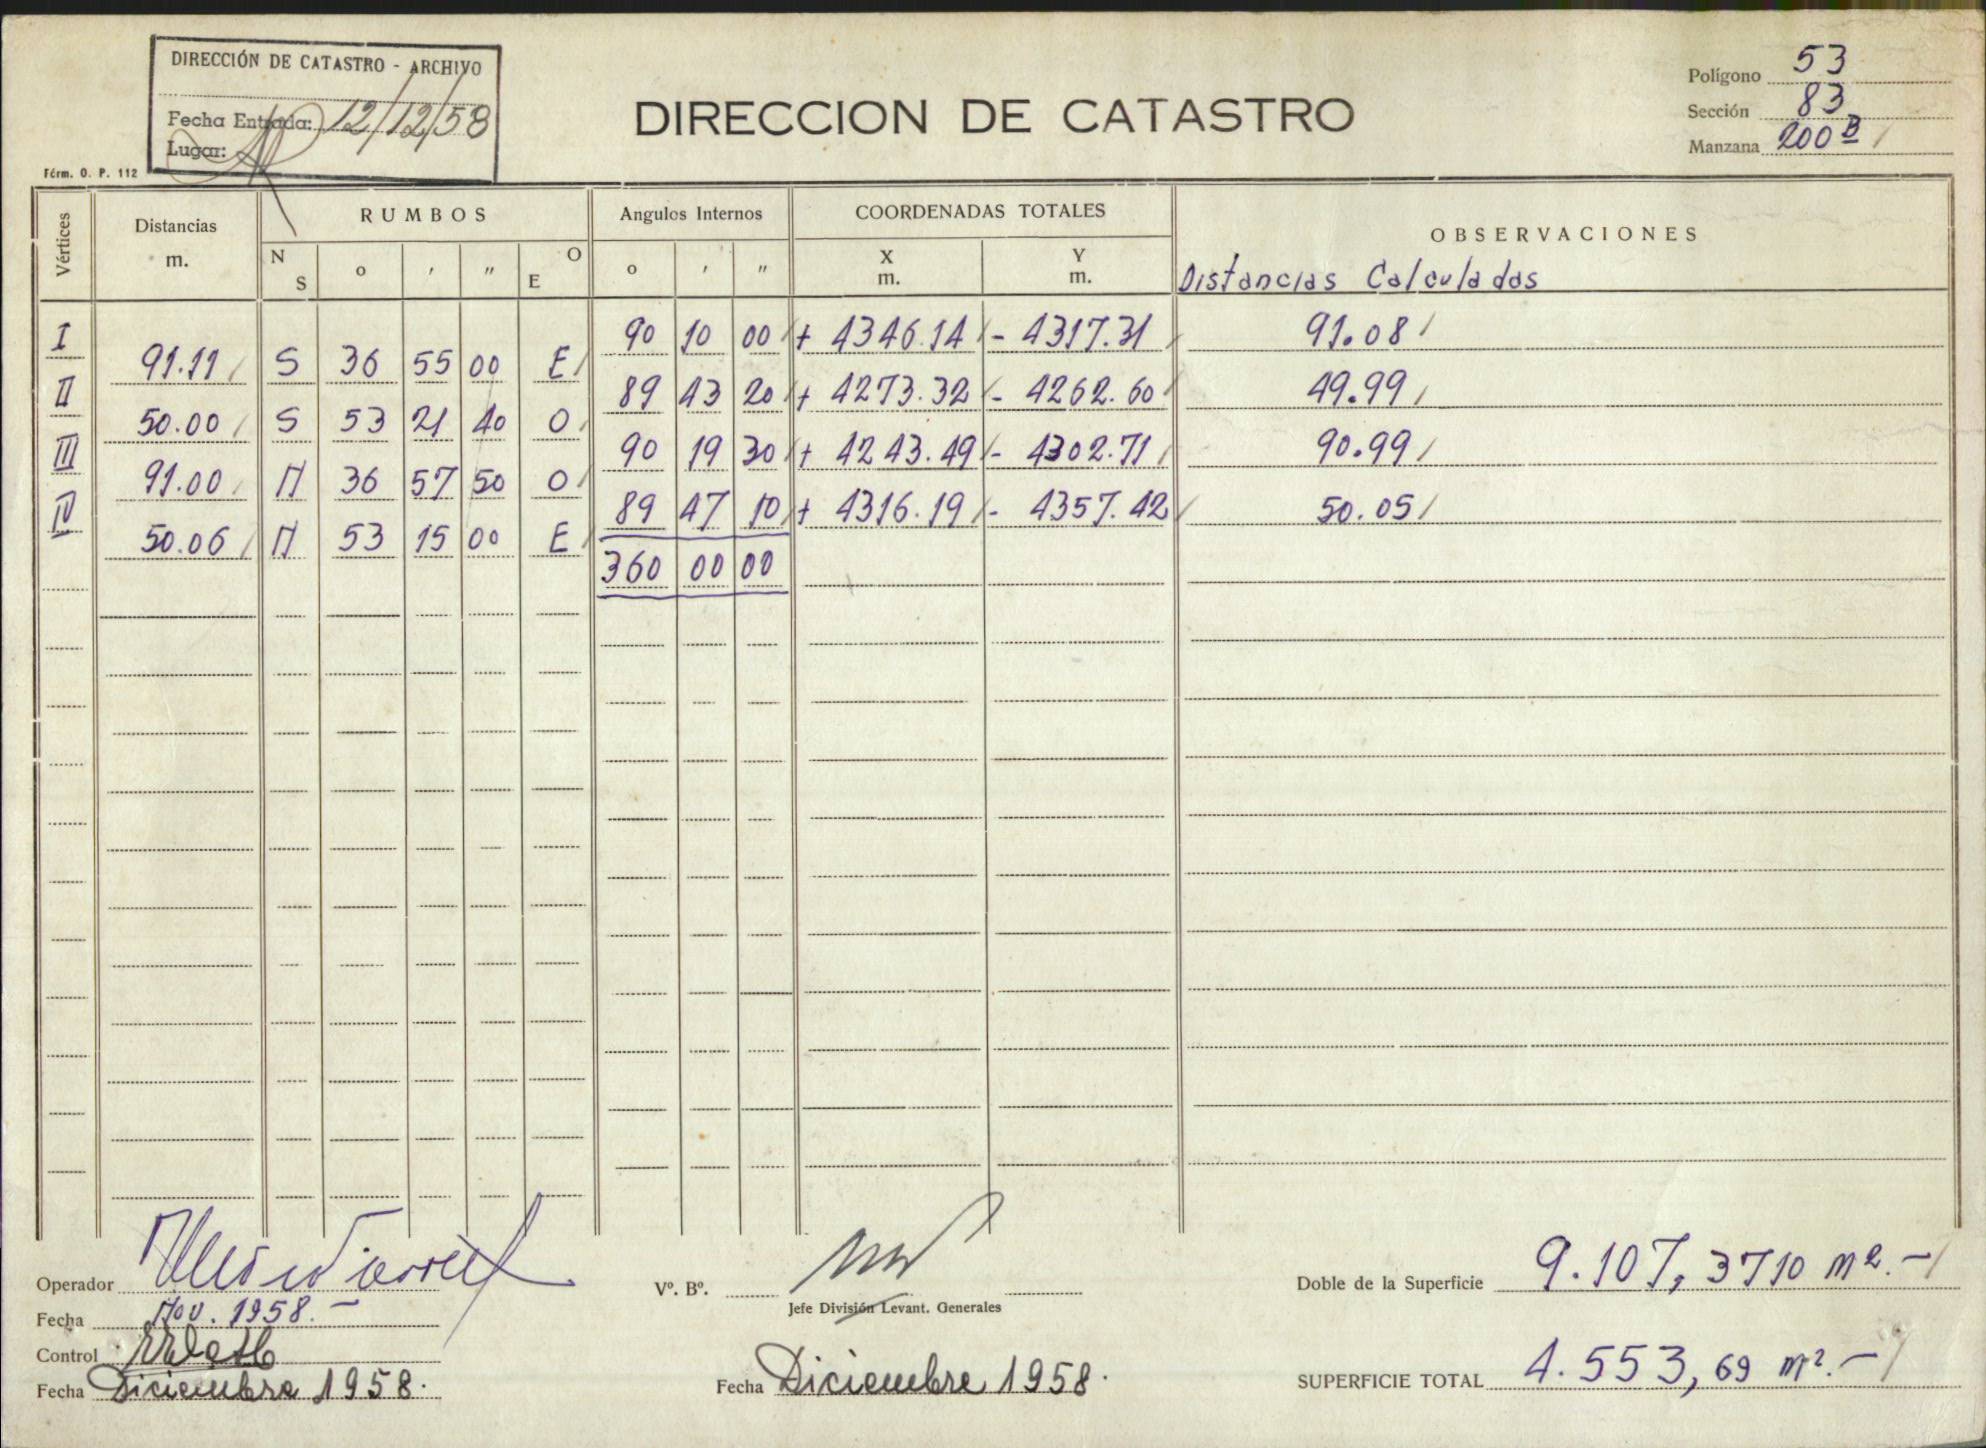 DIRECCIÓN DE CATASTRO - ARCHIVO
Fecha Entrada: 12/12/58
Lugar:
DIRECCION DE CATASTRO
Polígono 53
Sección 83
Manzana 200 B
Férm. O. P. 112
Vértices Distancias m. RUMBOS Angulos Internos COORDENADAS TOTALES OBSERVACIONES
N S o ′ ″ E O o ′ ″ X m. Y m. Distancias Calculadas
I 90 10 00 + 4346.14 - 4317.31 91.08
91.11 S 36 55 00 E
II 89 43 20 + 4273.32 - 4262.60 49.99
50.00 S 53 21 40 O
III 90 19 30 + 4243.49 - 4302.71 90.99
91.00 N 36 57 50 O
IV 89 47 10 + 4316.19 - 4357.42 50.05
50.06 N 53 15 00 E
360 00 00
Operador
Fecha Nov. 1958.-
Control
Fecha Diciembre 1958.
Vº. Bº.
Jefe División Levant. Generales
Fecha Diciembre 1958.
Doble de la Superficie 9.107,3710 m2.-
SUPERFICIE TOTAL 4.553,69 m2.-